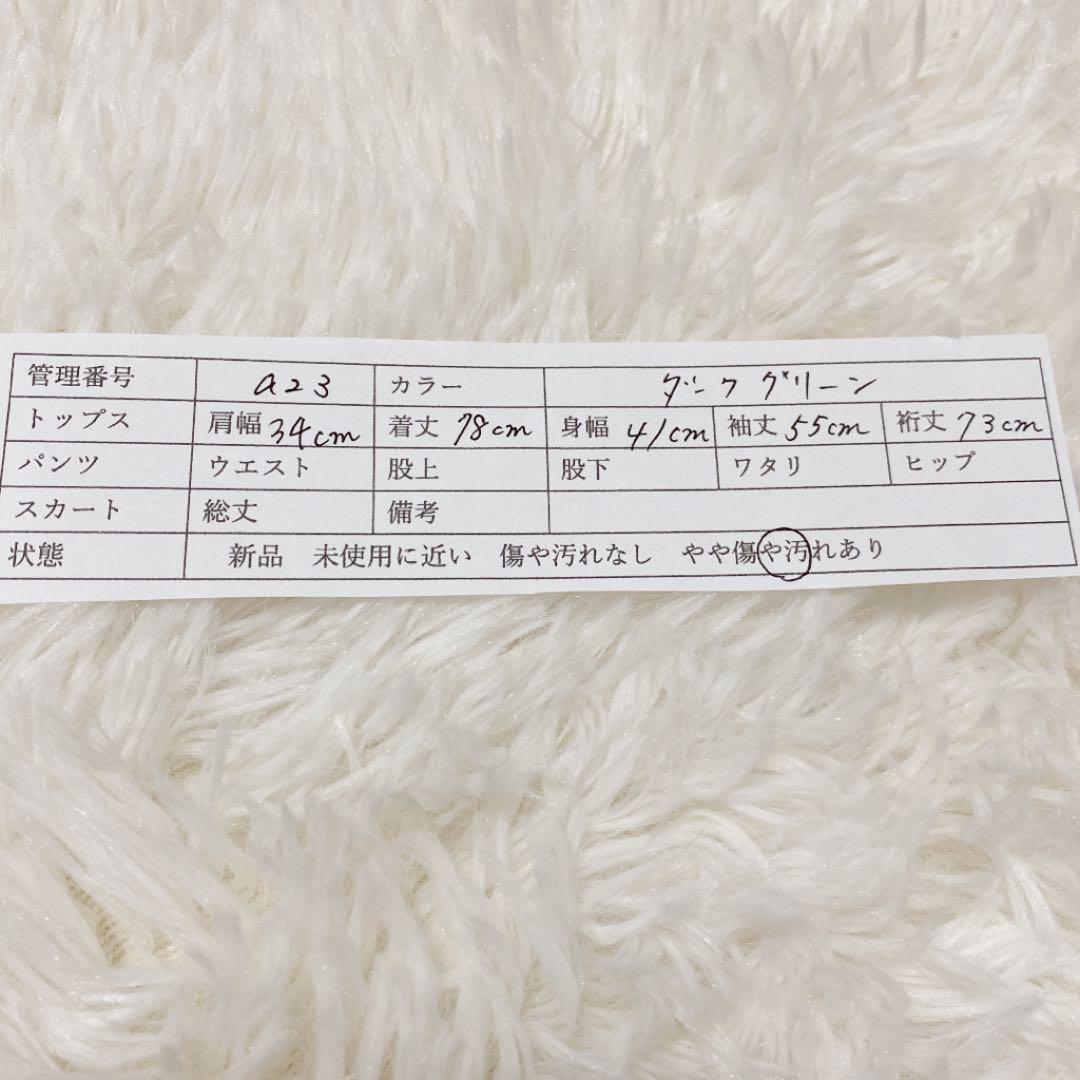 管理番号 a23 カラー ダークグリーン
トップス 肩幅 34cm 着丈 78cm 身幅 41cm 袖丈 55cm 裄丈 73cm
パンツ ウエスト 股上 股下 ワタリ ヒップ
スカート 総丈 備考
状態 新品 未使用に近い 傷や汚れなし やや傷や汚れあり